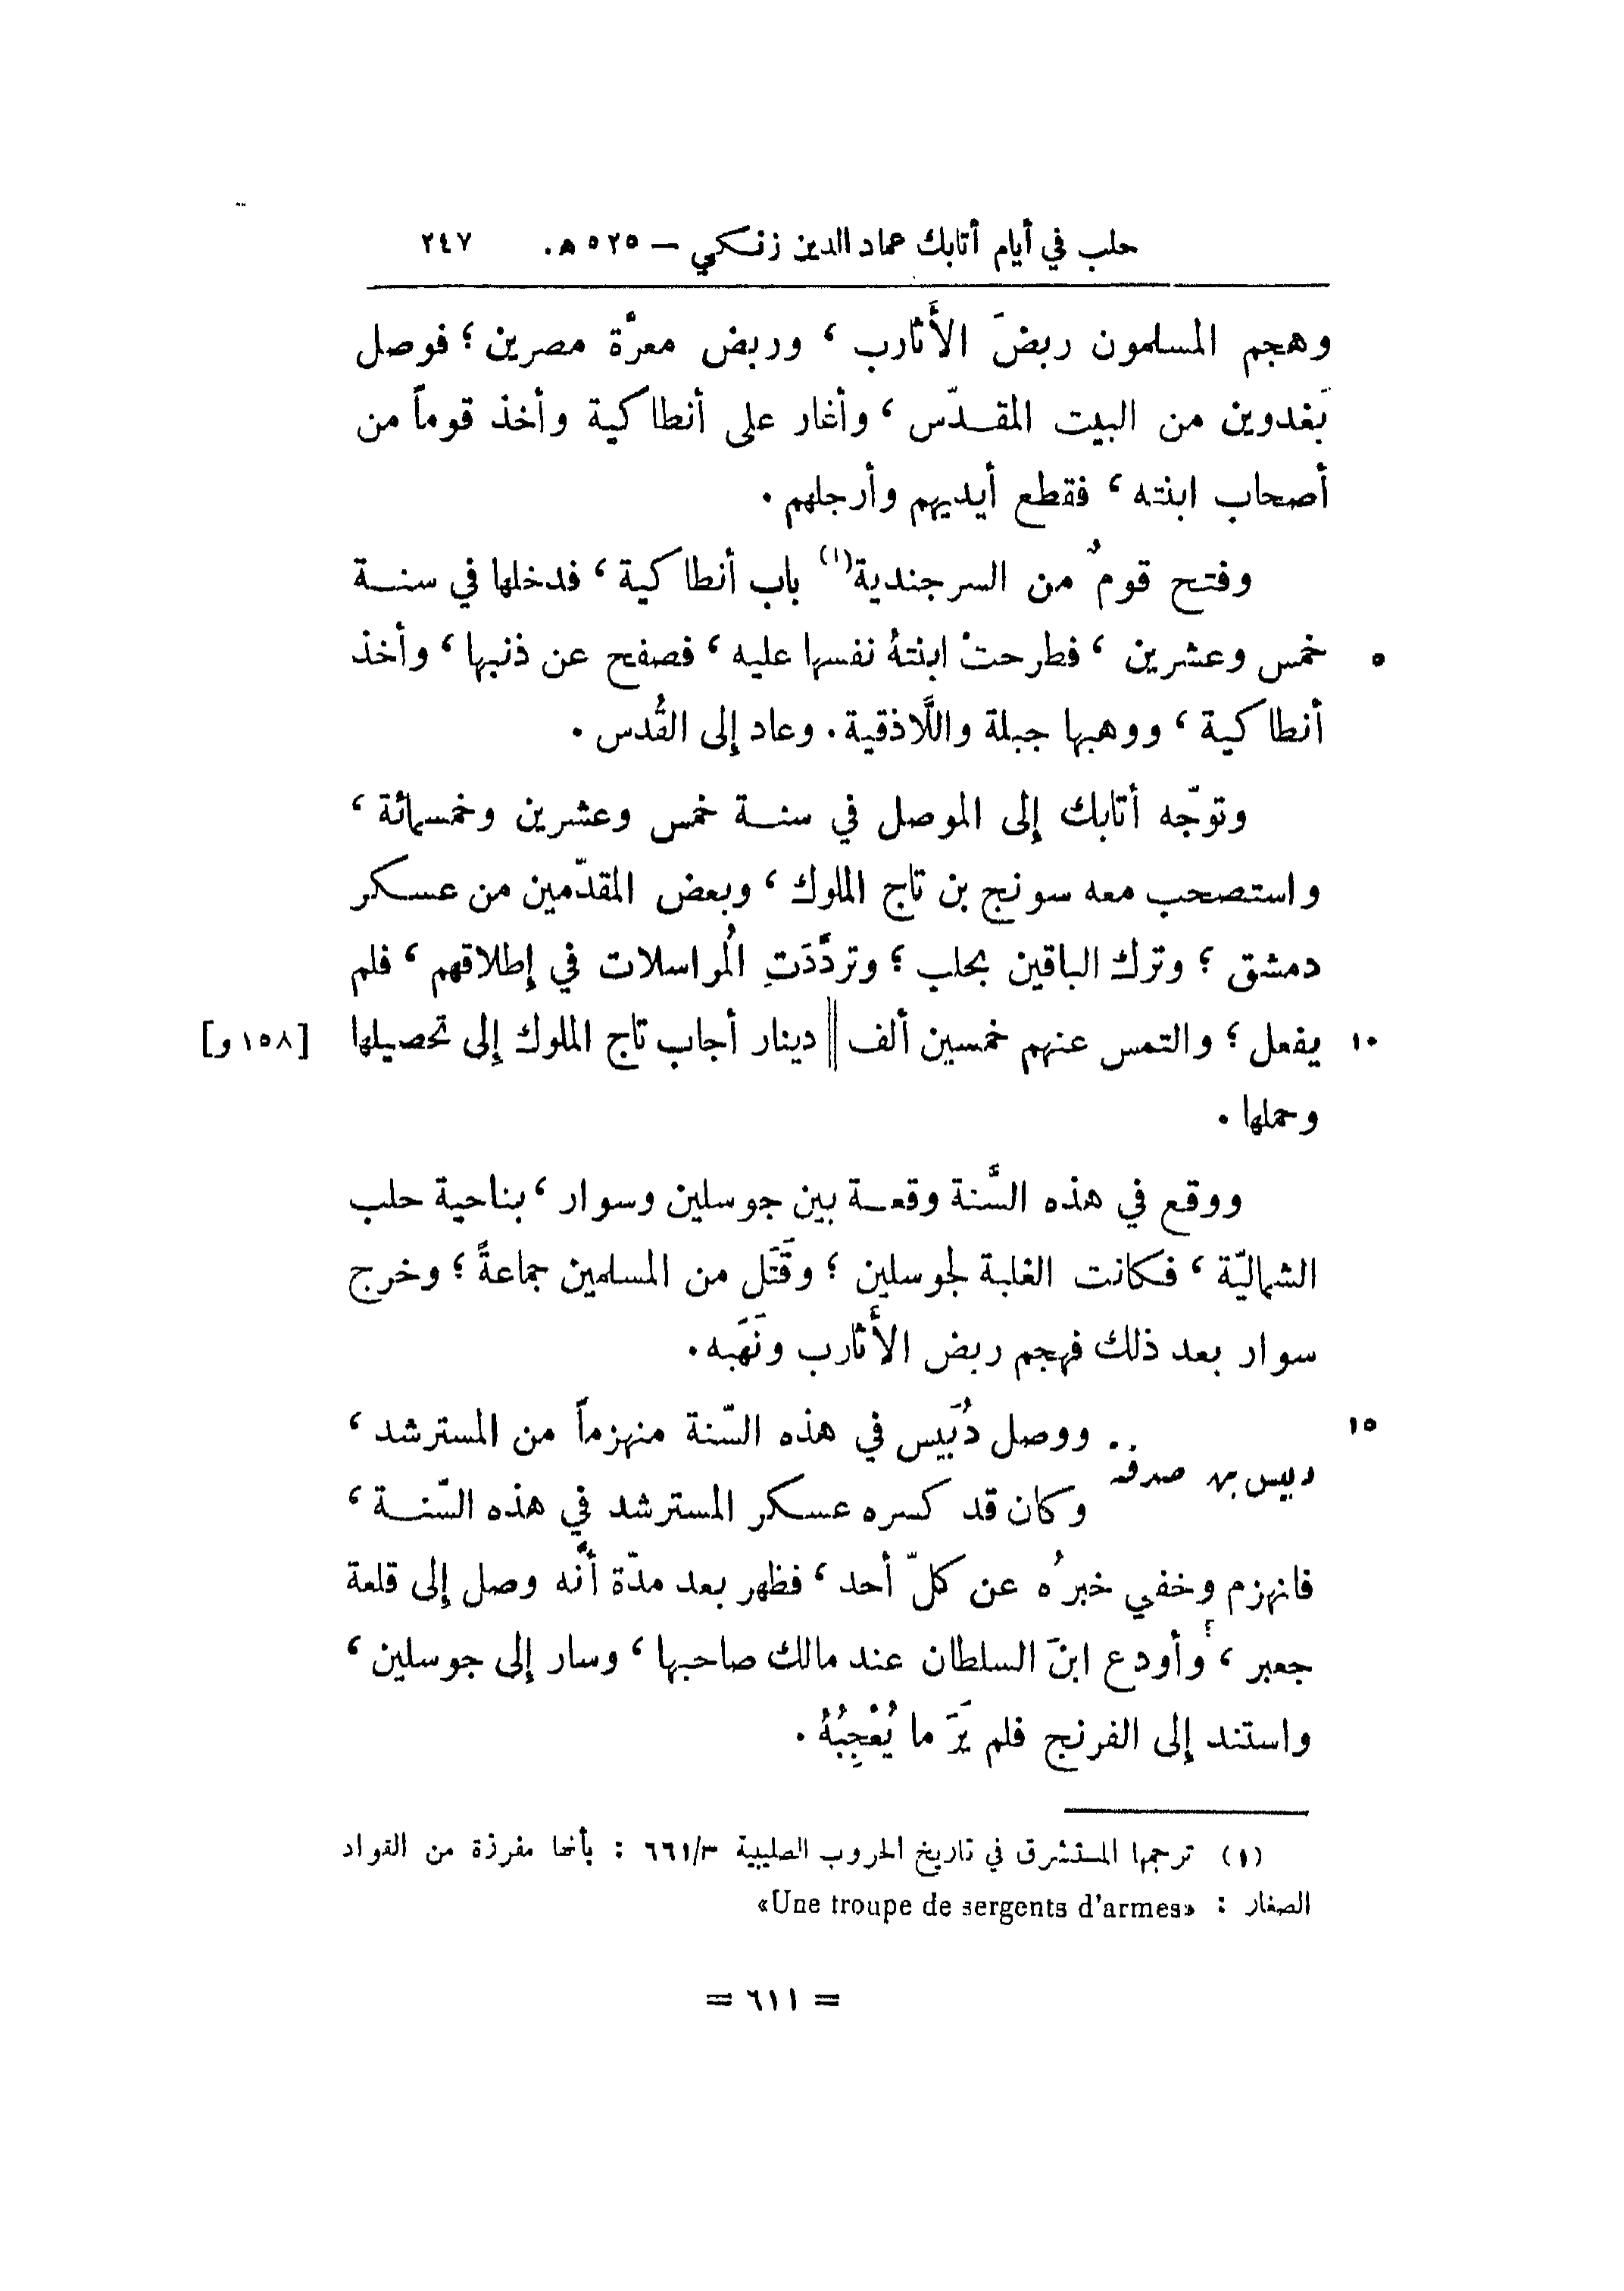 حلب في أيام أتابك عماد الدين زنكي — ٥٢٥ هـ. ٢٤٧
وهجم المسلمون ربضَ الأَثارب ، وربض معرَّة مصرين ؛ فوصل
بَغدوين من البيت المقدّس ، وأغار على أنطاكية وأخذ قوماً من
أصحاب ابنته ، فقطع أيديهم وأرجلهم .
وفتح قومٌ من السرجندية(١) باب أنطاكية ، فدخلها في سنة
٥ خمس وعشرين ، فطرحتْ ابنتهُ نفسها عليه ، فصفح عن ذنبها ، وأخذ
أنطاكية ، ووهبها جبلة واللَّاذقية . وعاد إلى القُدس .
وتوّجه أتابك إلى الموصل في سنة خمس وعشرين وخمسمائة ،
واستصحب معه سونج بن تاج الملوك ، وبعض المقدّمين من عسكر
دمشق ؛ وترك الباقين بحلب ؛ وتردَّدَتِ المُراسلات في إطلاقهم ، فلم
١٠ يفعل ؛ والتمس عنهم خمسين ألف || دينار أجاب تاج الملوك إلى تحصيلها [١٥٨ و]
وحملها .
ووقع في هذه السَّنة وقعة بين جوسلين وسوار ، بناحية حلب
الشماليّة ، فكانت الغلبة لجوسلين ؛ وقَتَل من المسلمين جماعةً ؛ وخرج
سوار بعد ذلك فهجم ربض الأَثارب ونَهَبه .
١٥ ووصل دُبَيس في هذه السّنة منهزماً من المسترشد ،
دبيس بن صدقة
وكان قد كسره عسكر المسترشد في هذه السّنة ،
فانهزم وخفي خبرُه عن كلّ أحد ، فظهر بعد مدّة أنَّه وصل إلى قلعة
جعبر ، وأودع ابنَ السلطان عند مالك صاحبها ، وسار إلى جوسلين ،
واستند إلى الفرنج فلم يَرَ ما يُعْجِبُهُ .
(١) ترجمها المستشرق في تاريخ الحروب الصليبية ٦٦١/٣ : بأنها مفرزة من القواد
الصغار : «Une troupe de sergents d'armes»
= ٦١١ =